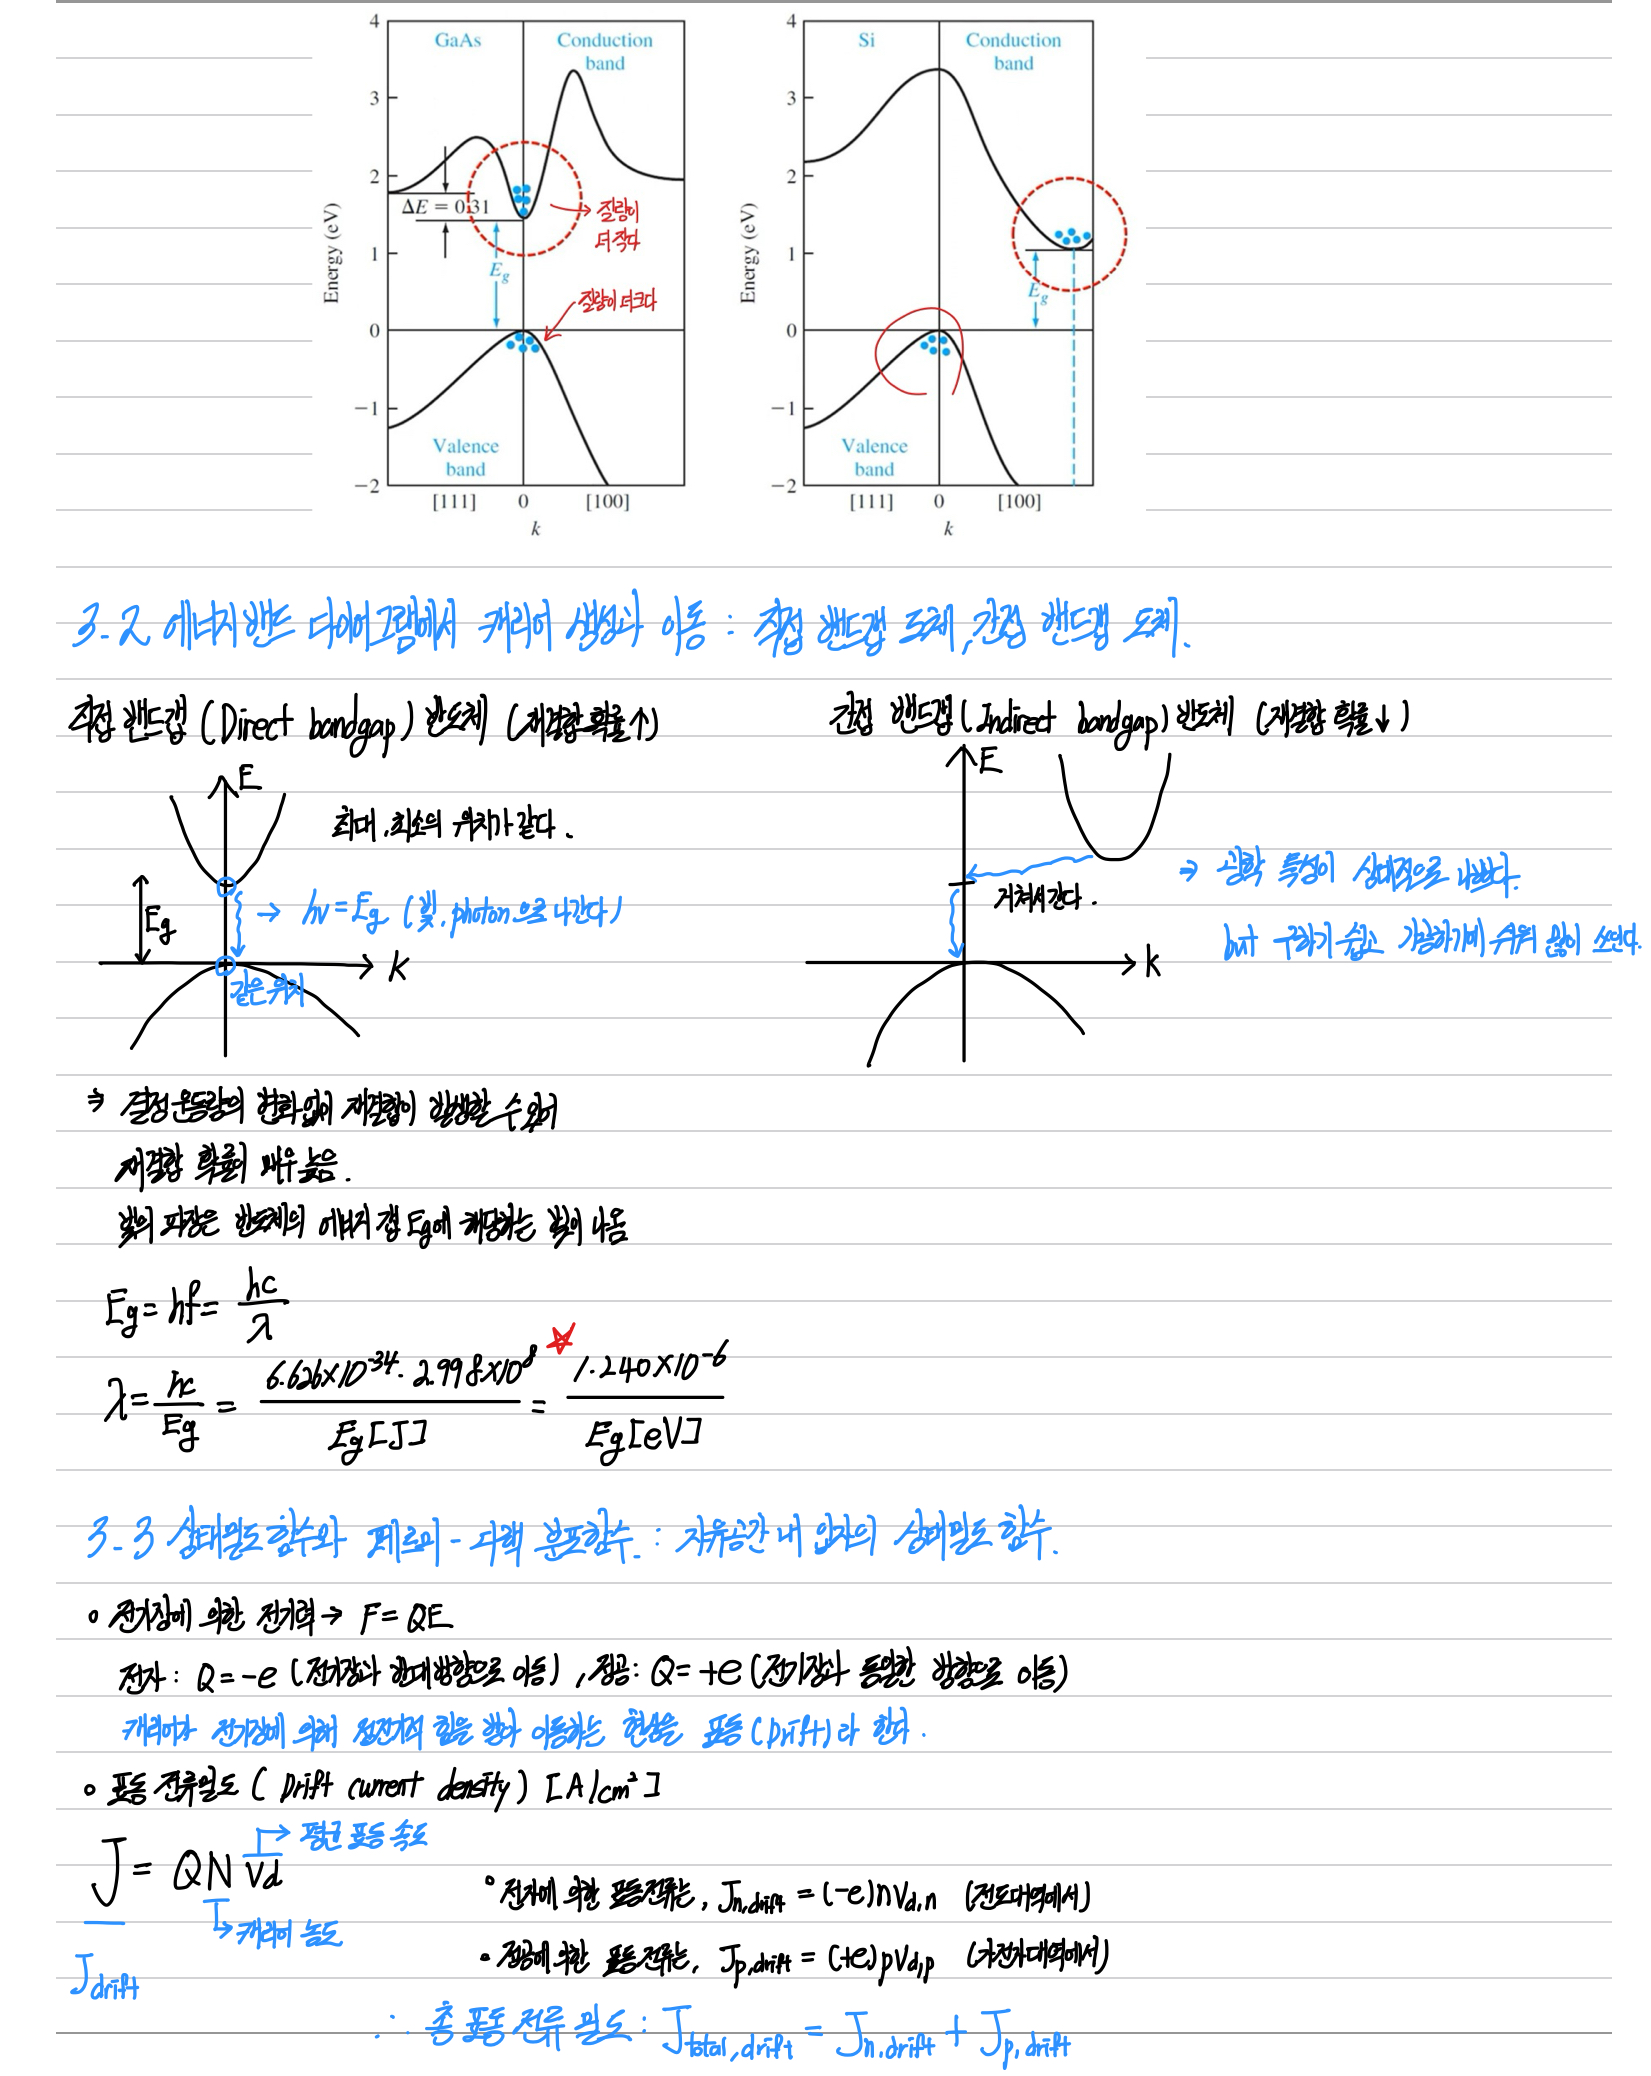 GaAs
Conduction band
ΔE = 0.31
E_g
질량이 더 작다
질량이 더 크다
Energy (eV)
4
3
2
1
0
−1
−2
Valence band
[111] 0 [100]
k
Si
Conduction band
E_g
Energy (eV)
4
3
2
1
0
−1
−2
Valence band
[111] 0 [100]
k
3-2 에너지 밴드 다이어그램에서 캐리어 생성과 이동 : 직접 밴드갭 도체, 간접 밴드갭 도체.
직접 밴드갭 (Direct bandgap) 반도체 (재결합 확률↑)
E
최대, 최소의 위치가 같다.
Eg
→ hν = Eg (빛, photon으로 나간다)
k
같은 위치
간접 밴드갭 (Indirect bandgap) 반도체 (재결합 확률↓)
E
거쳐서 간다.
k
⇒ 광학 특성이 상대적으로 나쁘다.
but 구하기 쉽고 가공하기에 쉬워 많이 쓰인다.
⇒ 결정운동량의 변화없이 재결합이 발생할 수 있어
재결합 확률이 매우 높음.
빛의 파장은 반도체의 에너지 갭 Eg에 해당하는 빛이 나옴
Eg = hf = hc/λ
λ = hc/Eg = 6.626×10^-34 · 2.998×10^8 / Eg[J] = 1.240×10^-6 / Eg[eV]
3-3 상태밀도 함수와 페르미-디랙 분포함수. : 자유공간 내 입자의 상태밀도 함수.
∘ 전기장에 의한 전기력 → F = QE
전자 : Q = -e (전기장과 반대방향으로 이동), 정공 : Q = +e (전기장과 동일한 방향으로 이동)
캐리어가 전기장에 의해 정전기적 힘을 받아 이동하는 현상을 표동 (Drift)라 한다.
∘ 표동 전류밀도 (Drift current density) [A/cm²]
J = QNvd
→ 평균 표동 속도
→ 캐리어 농도
Jdrift
∘ 전자에 의한 표동전류는, Jn,drift = (-e)nVd,n (전도대역에서)
∘ 정공에 의한 표동전류는, Jp,drift = (+e)pVd,p (가전자대역에서)
∴ 총 표동 전류 밀도 : Jtotal,drift = Jn,drift + Jp,drift